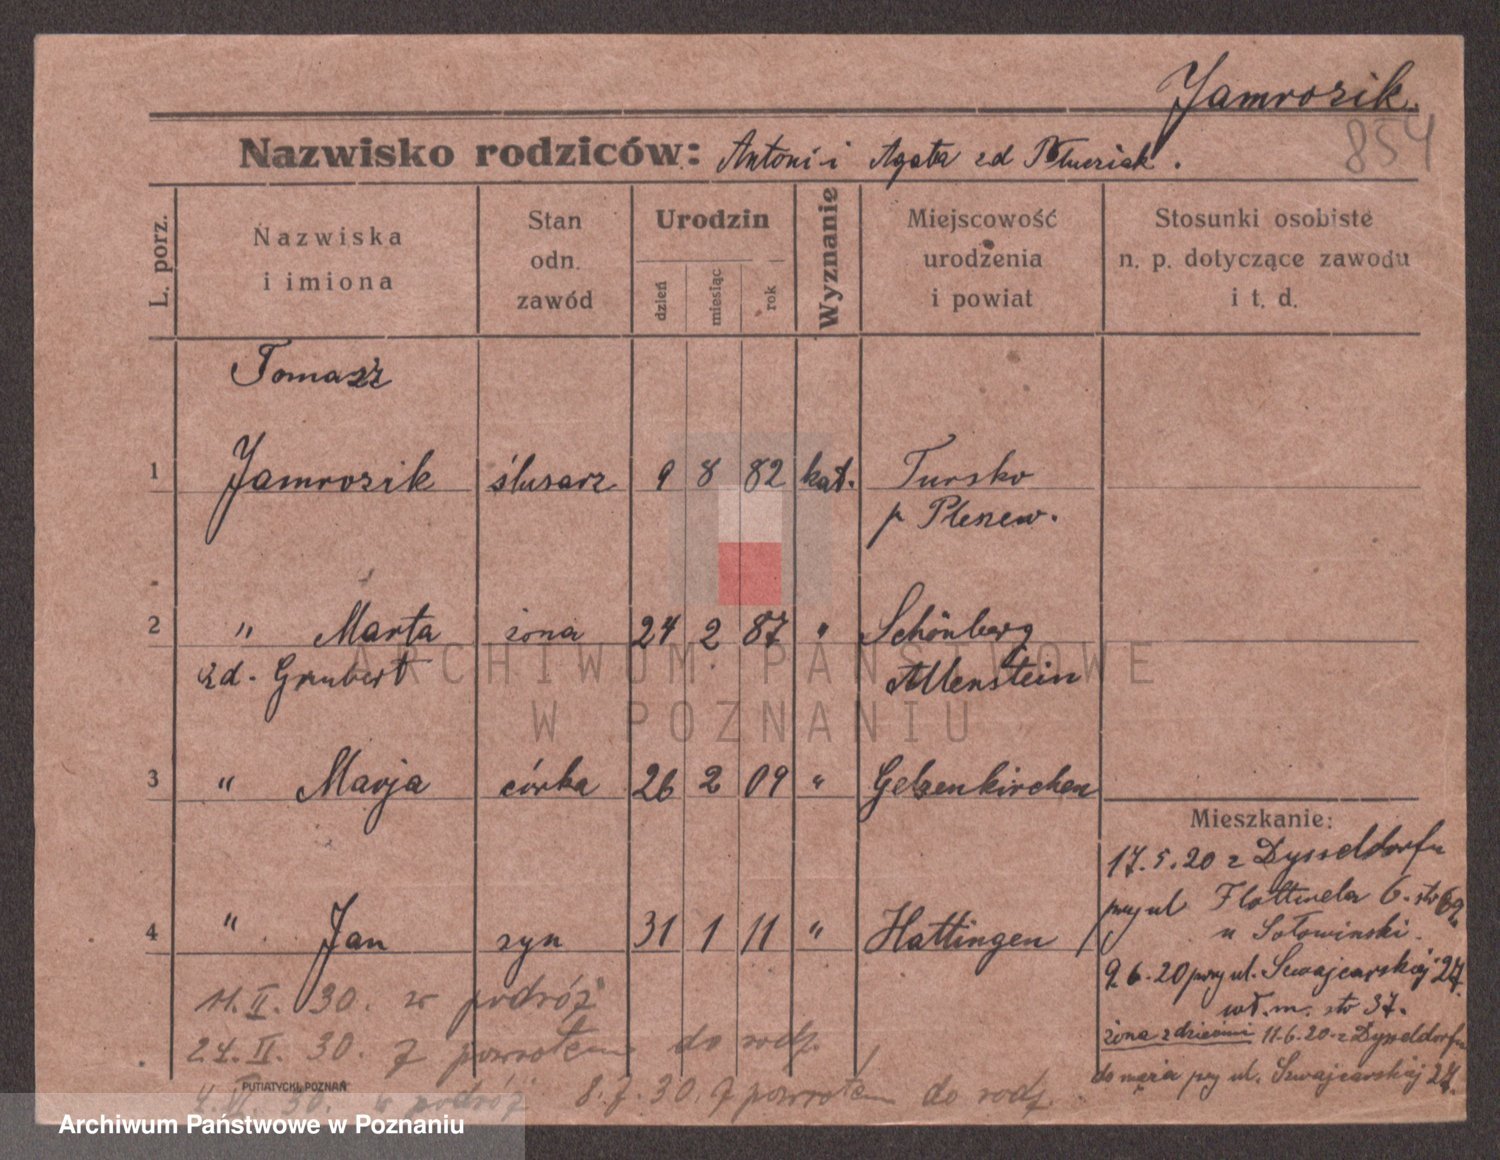 Jamrozik.
854
Nazwisko rodziców: Antoni i Agata zd
L. porz.
Nazwiska i imiona
Stan odn. zawód
Urodzin
dzień
miesiąc
rok
Wyznanie
Miejscowość urodzenia i powiat
Stosunki osobiste n. p. dotyczące zawodu i t. d.
Tomasz
1 Jamrozik ślusarz 9 8 82 kat. Tursko
p Pleszew.
2 " Marta żona 24 2 87 " Schönberg
zd. Grubert Allenstein
ARCHIWUM PAŃSTWOWE
W POZNANIU
3 " Marja córka 26 2 09 " Gelsenkirchen
4 " Jan syn 31 1 11 " Hattingen
Mieszkanie:
17.5.20 z Dysseldorfu
przy ul 6. str 69
u Sołowinski.
9.6.20 przy ul. Szwajcarskiej 27.
wł. m. str 37.
żona z dziećmi 11.6.20 z Dysseldorfu
do męża przy ul. Szwajcarskiej 27.
11. II. 30. w podróż
24. II. 30. z powrotem do rodz.
4. VI. 30. w podróż 8.7.30. z powrotem do rodz.
PUTIATYCKI, POZNAŃ
Archiwum Państwowe w Poznaniu